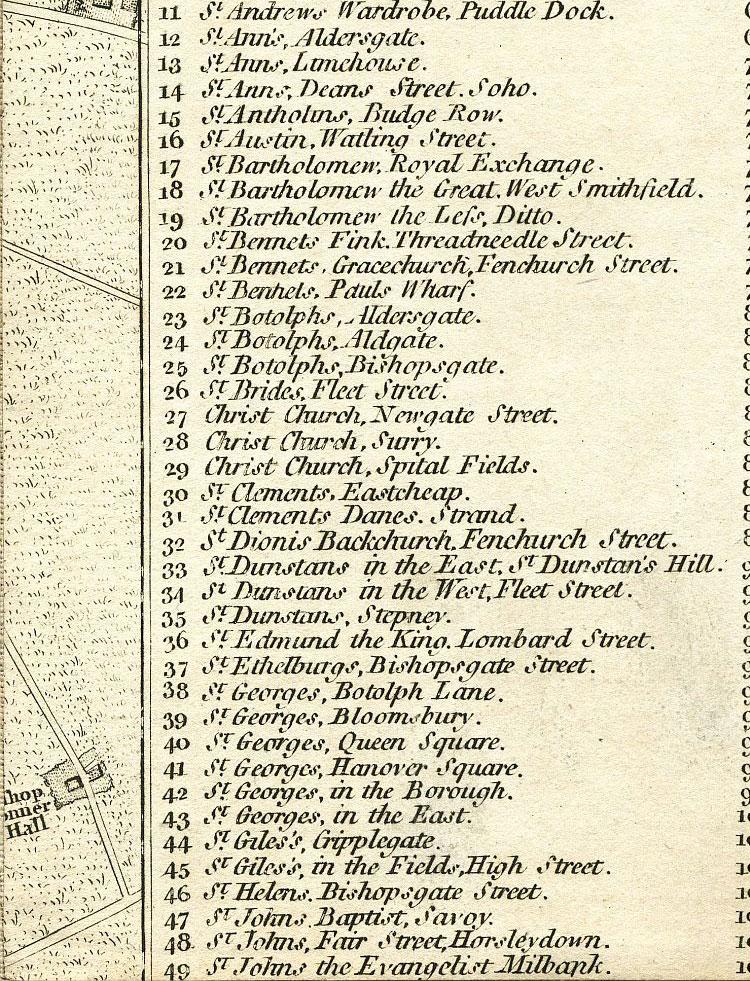 11 St Andrews Wardrobe, Puddle Dock.
12 St Ann's, Aldersgate.
13 St Anns, Limehouse.
14 St Anns, Deans Street. Soho.
15 St Antholins, Budge Row.
16 St Austin, Watling Street.
17 St Bartholomew, Royal Exchange.
18 St Bartholomew the Great, West Smithfield.
19 St Bartholomew the Leſs, Ditto.
20 St Bennets Fink. Threadneedle Street.
21 St Bennets, Gracechurch, Fenchurch Street.
22 St Bennets, Pauls Wharf.
23 St Botolphs, Aldersgate.
24 St Botolphs, Aldgate.
25 St Botolphs, Bishopsgate.
26 St Brides, Fleet Street.
27 Christ Church, Newgate Street.
28 Christ Church, Surry.
29 Christ Church, Spital Fields.
30 St Clements, Eastcheap.
31 St Clements Danes. Strand.
32 St Dionis Backchurch, Fenchurch Street.
33 St Dunstans in the East, St Dunstan's Hill.
34 St Dunstans in the West, Fleet Street.
35 St Dunstans, Stepney.
36 St Edmund the King. Lombard Street.
37 St Ethelburgs, Bishopsgate Street.
38 St Georges, Botolph Lane.
39 St Georges, Bloomsbury.
40 St Georges, Queen Square.
41 St Georges, Hanover Square.
42 St Georges, in the Borough.
43 St Georges, in the East.
44 St Giles's, Cripplegate.
45 St Giles's, in the Fields, High Street.
46 St Helens. Bishopsgate Street.
47 St Johns Baptist, Savoy.
48 St Johns, Fair Street, Horsleydown.
49 St Johns the Evangelist Milbank.
hop
onner
Hall